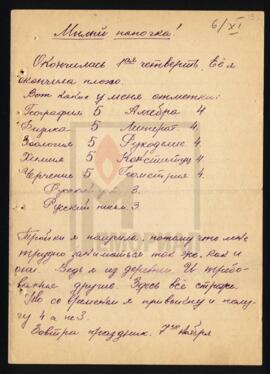 6/XI
Милый папочка!
Окончилась Iая четверть. Её я
окончила плохо.
Вот какие у меня отметки:
География 5 Алгебра 4
Физика 5 Литерат 4
Зоология 5 Рукоделие 4
Химия 5 Конституц 4
Черчение 5 Геометрия 4.
Русский у 3.
Русский письм. 3.
Тройки я получила, потому что мне
трудно заниматься так же, как и
они. Ведь я из деревни. И требо-
вания другие. Здесь всё строже.
Но со временем я привыкну и получу
4 а не 3.
Завтра праздник. 7го Ноября